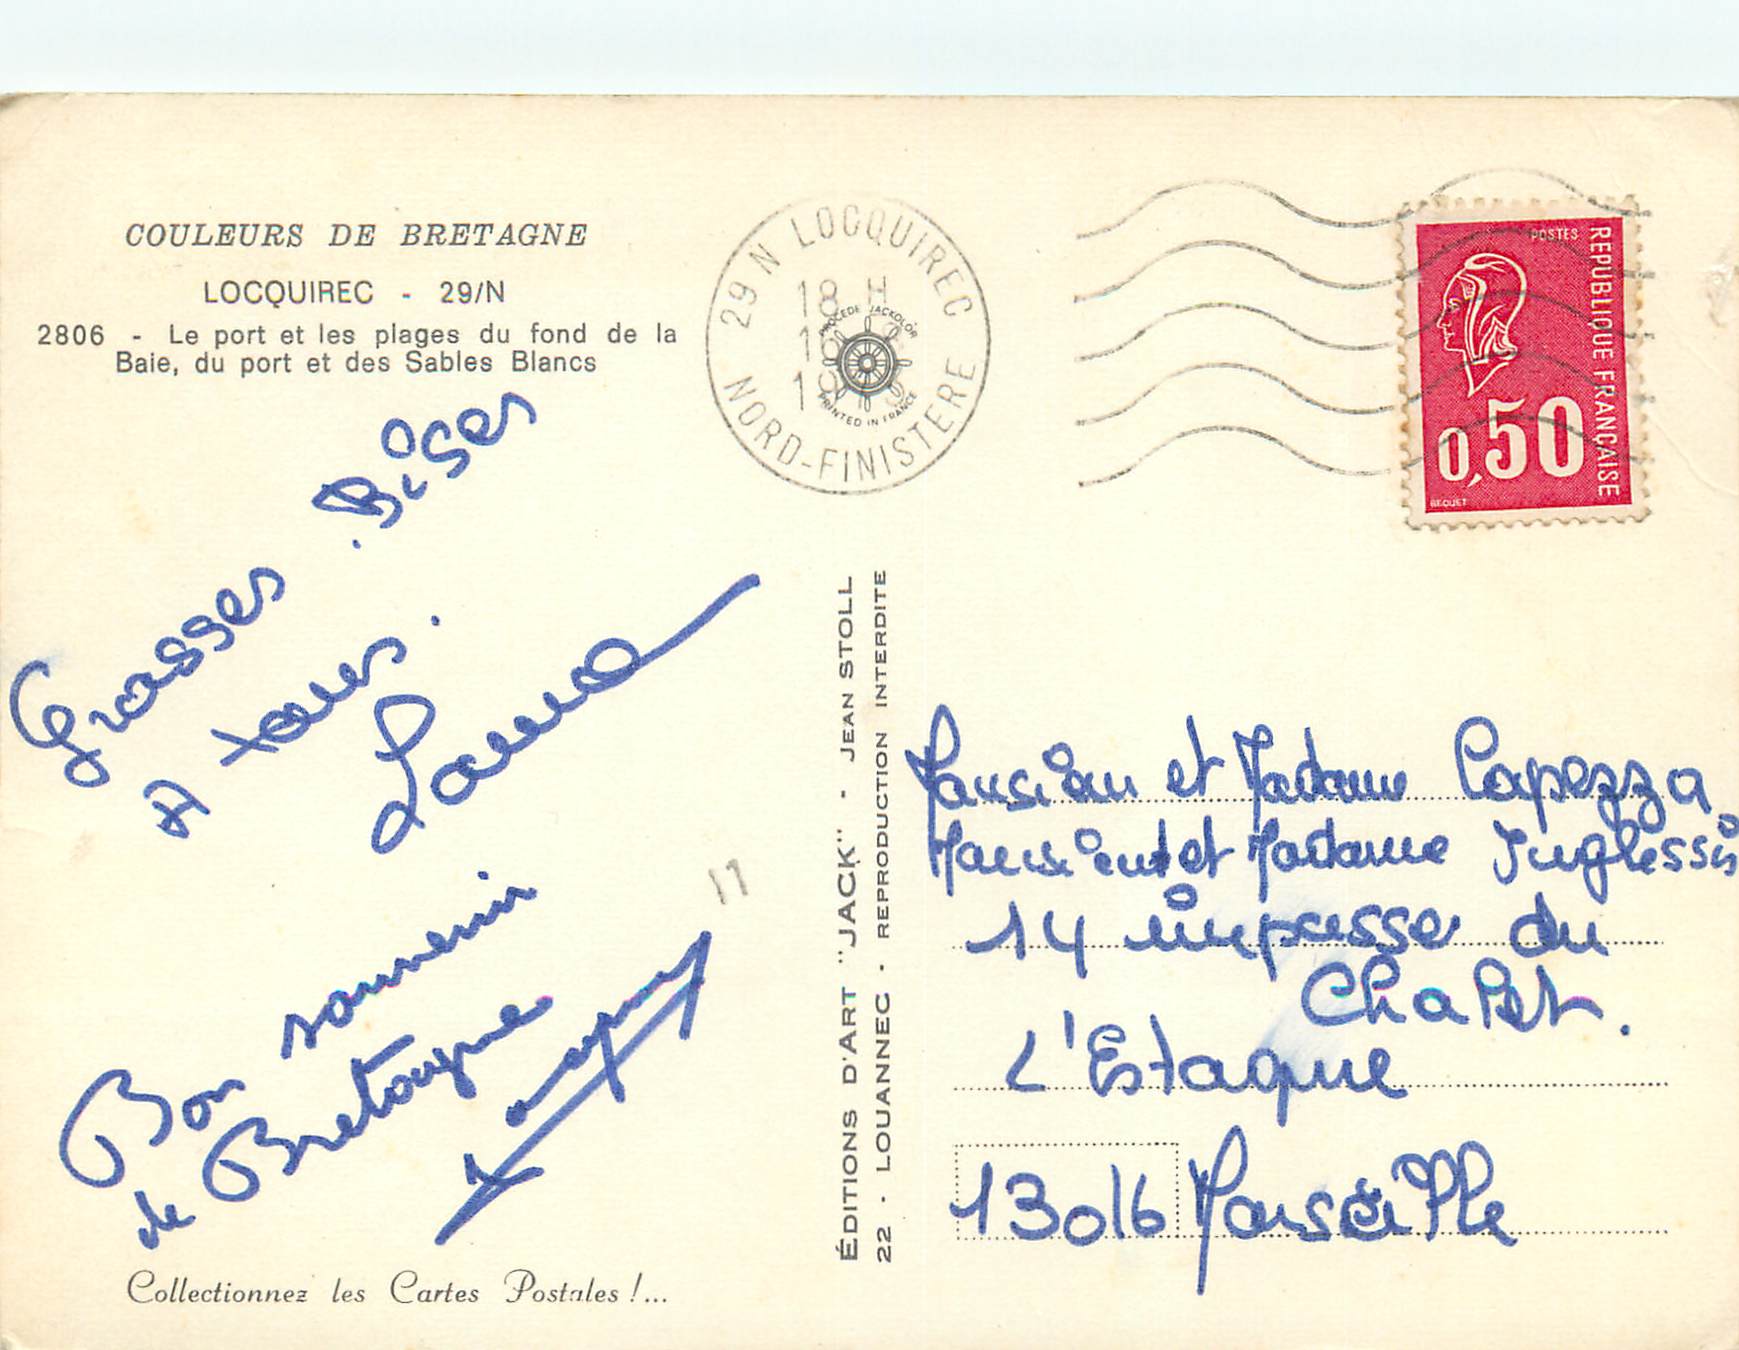 COULEURS DE BRETAGNE
LOCQUIREC - 29/N
2806 - Le port et les plages du fond de la
Baie, du port et des Sables Blancs
Grosses Bises
A tous.
Bon souvenir
de Bretagne
Collectionnez les Cartes Postales !...
29 N LOCQUIREC
18 H
NORD-FINISTERE
PROCÉDÉ JACKOLOR
PRINTED IN FRANCE
11
ÉDITIONS D'ART "JACK" - JEAN STOLL
22 - LOUANNEC - REPRODUCTION INTERDITE
POSTES
REPUBLIQUE FRANÇAISE
0,50
BEQUET
Monsieur et Madame Capezza
Monsieur et Madame Inglessis
14 impasse du
Chalet.
L'Estaque
13016 Marseille